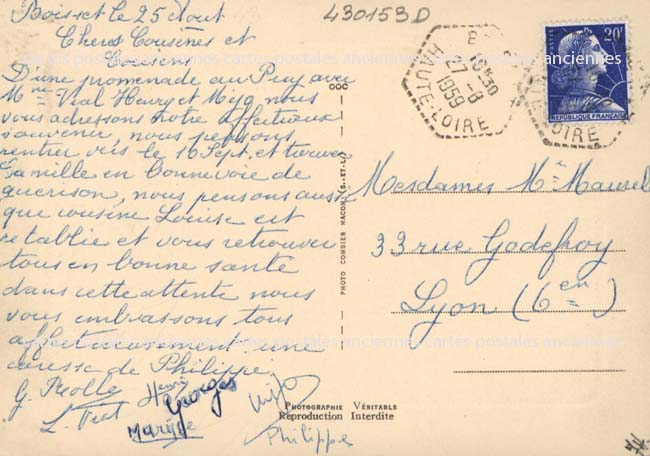 Boisset le 25 Aout
430153D
Cheres Cousines et
Cousins
D'une promenade au Puy avec
Mme Vial Henry et Mijo nous
vous adressons notre affectueux
souvenir nous pensons
rentrer vers le 10 Sept. et trouver
famille en bonne voie de
guerison, nous pensons aussi
que cousine Louise est
retablie et vous retrouver
tous en bonne sante
dans cette attente nous
vous embrassons tous
affectueusement une
caresse de Philippe
G.
L. Henri Georges Mijo
Maryse Philippe
OGC
PHOTO COMBIER MACON (S.-ET-L.)
27-8
1959
HAUTE-LOIRE
POSTES 20F
REPUBLIQUE FRANÇAISE
LOIRE
Mesdames Mce Maurel
33 rue Godefroy
Lyon (6en)
PHOTOGRAPHIE VÉRITABLE
Reproduction Interdite
cartes postales anciennes cartes postales anciennes
cartes postales anciennes cartes postales anciennes